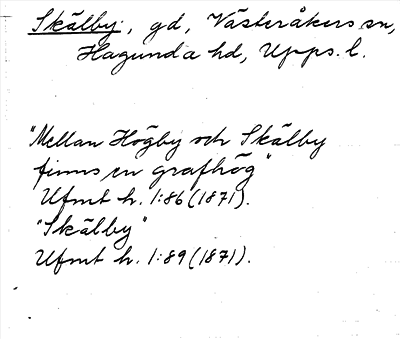 Skälby, gd, Västeråkers sn,
Hagunda hd, Upps. l.
"Mellan Högby och Skälby
finns en grafhög"
Ufmt h. 1:86 (1871).
"Skälby"
Ufmt h. 1:89 (1871).